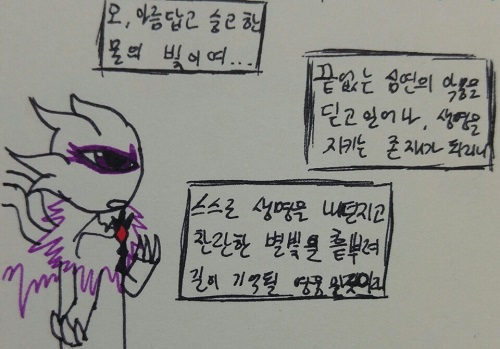 오, 아름답고 숭고한
물의 빛이여...
끝없는 심연의 악몽을
딛고 일어나, 생명을
지키는 존재가 되리니
스스로 생명을 내던지고
찬란한 별빛을 흩뿌려
길이 기억될 영웅